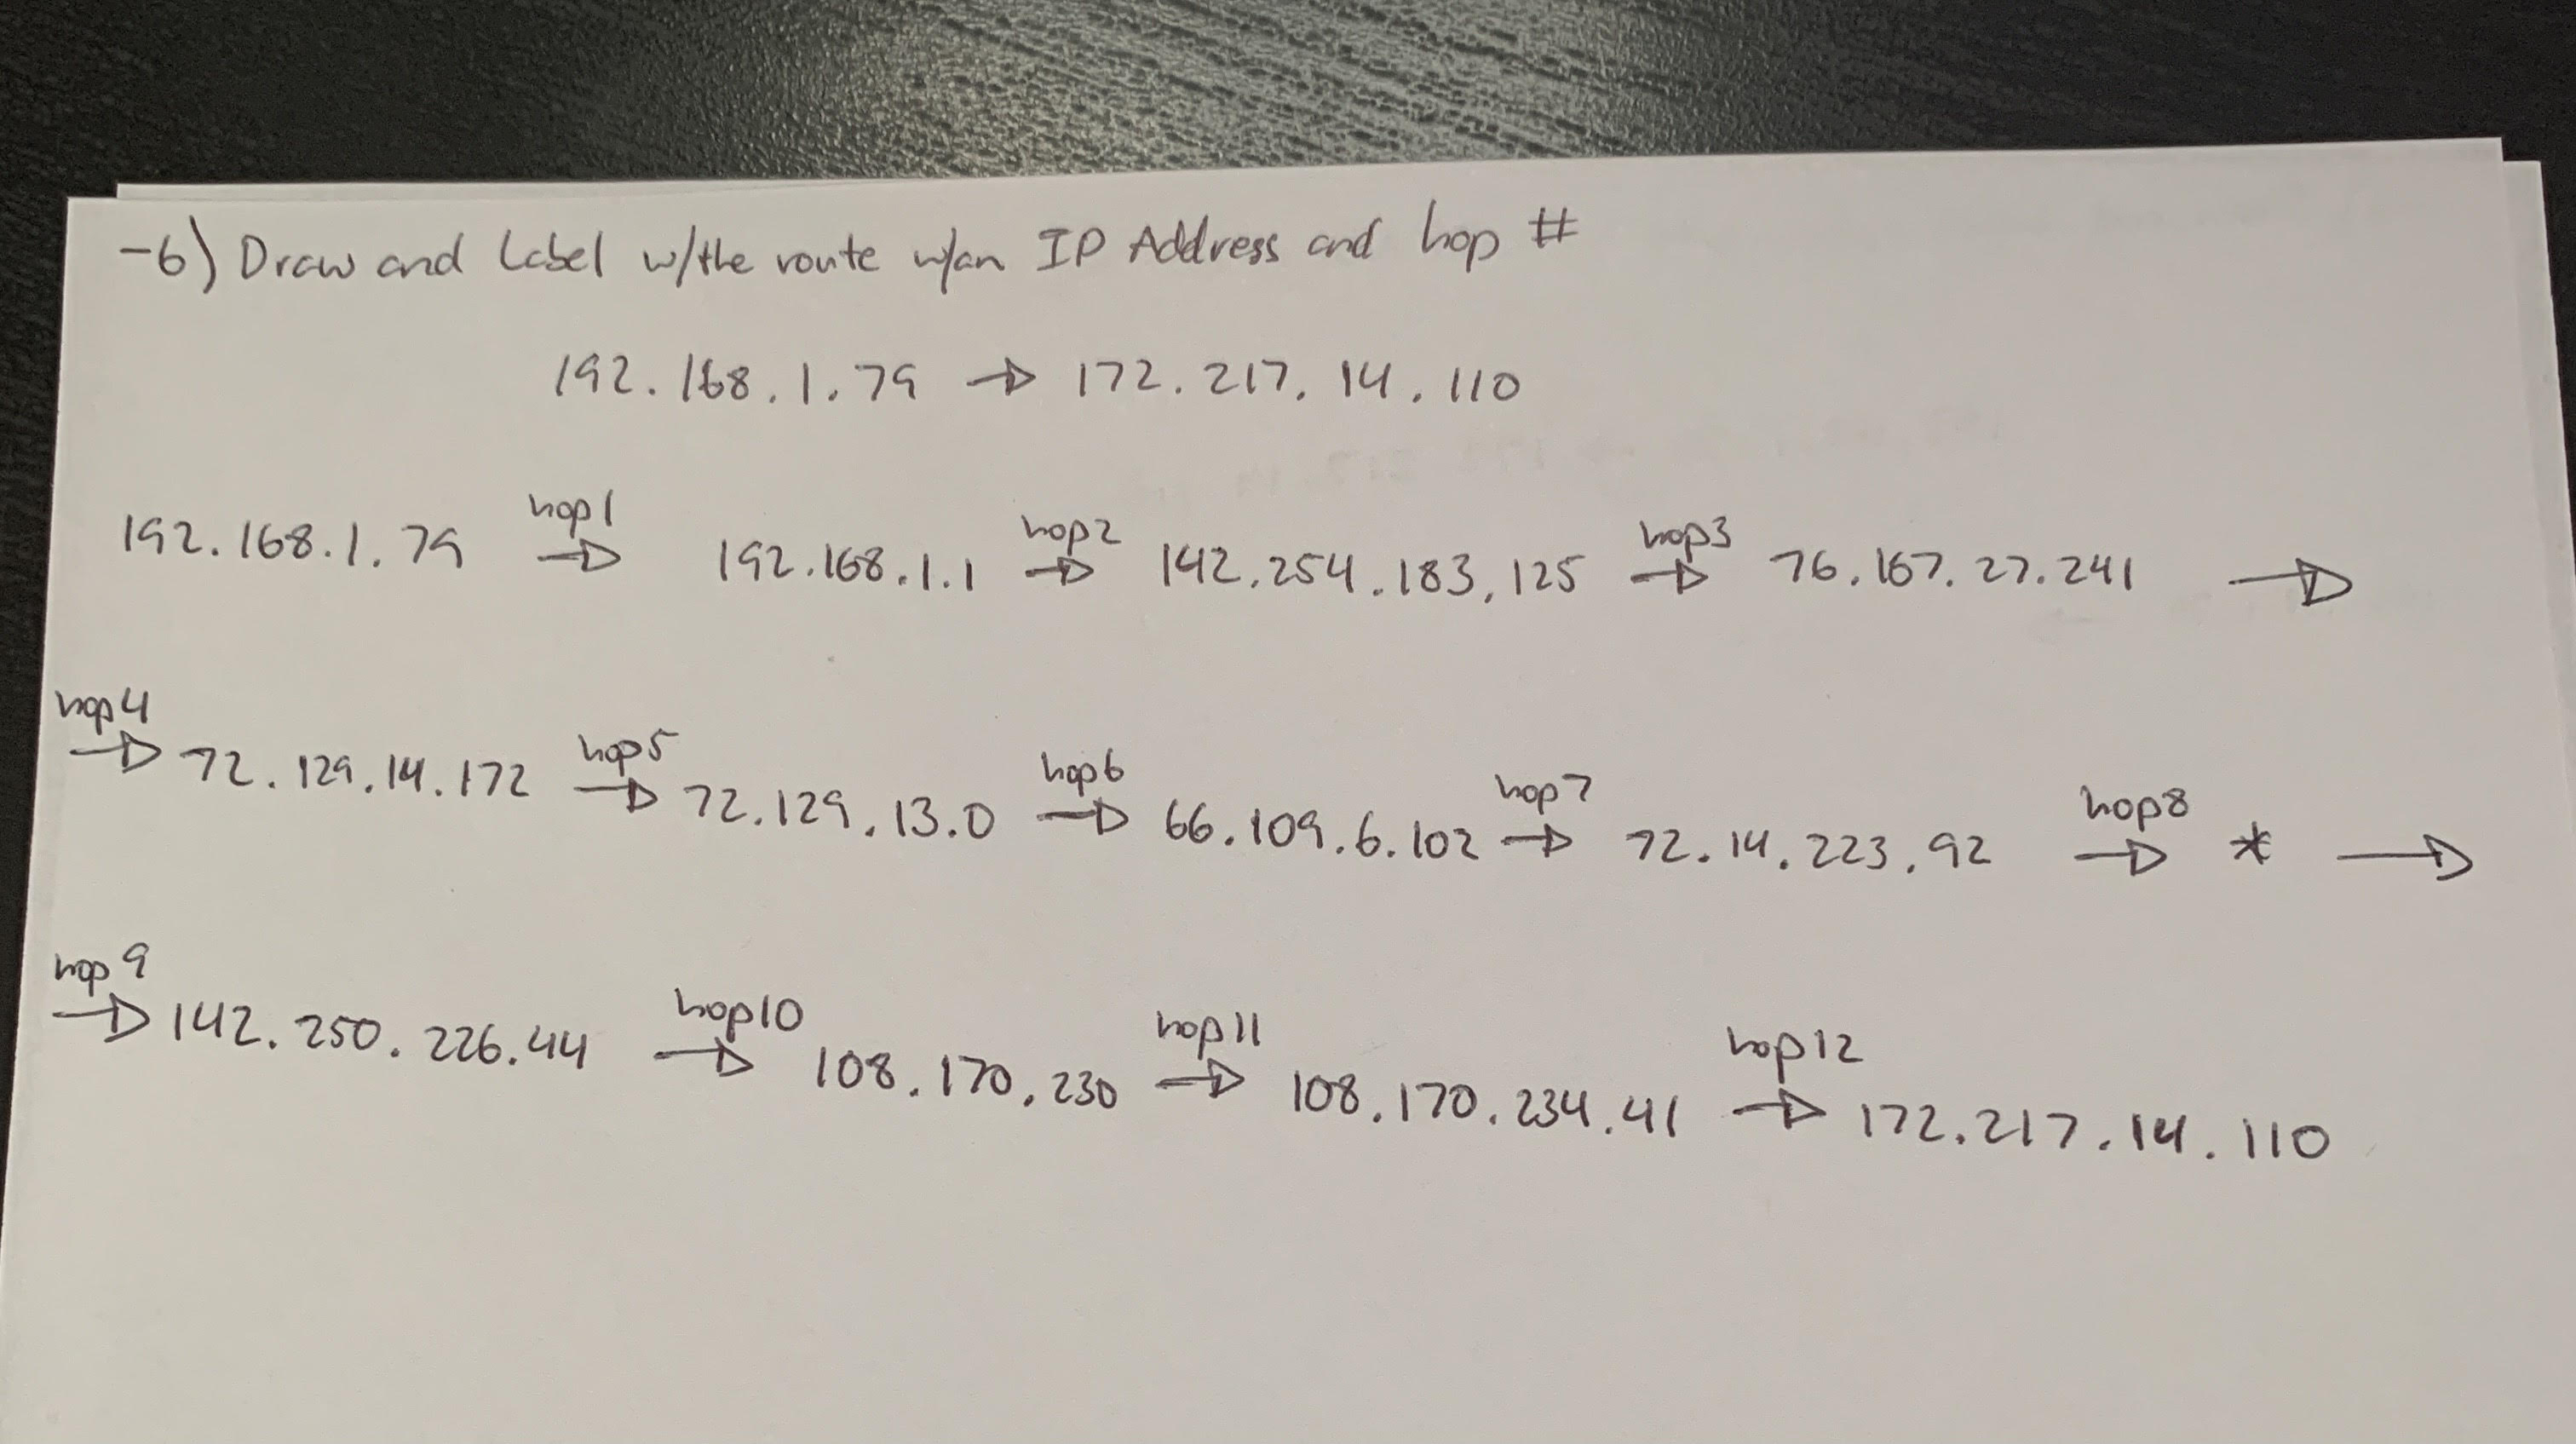 -6) Draw and Label w/the route w/an IP Address and hop #
192.168.1.79 → 172.217.14.110
192.168.1.79 hop1 → 192.168.1.1 hop2 → 142.254.183.125 hop3 → 76.167.27.241 →
hop4 → 72.129.14.172 hop5 → 72.129.13.0 hop6 → 66.109.6.102 hop7 → 72.14.223.92 hop8 → * →
hop9 → 142.250.226.44 hop10 → 108.170.230 hop11 → 108.170.234.41 hop12 → 172.217.14.110